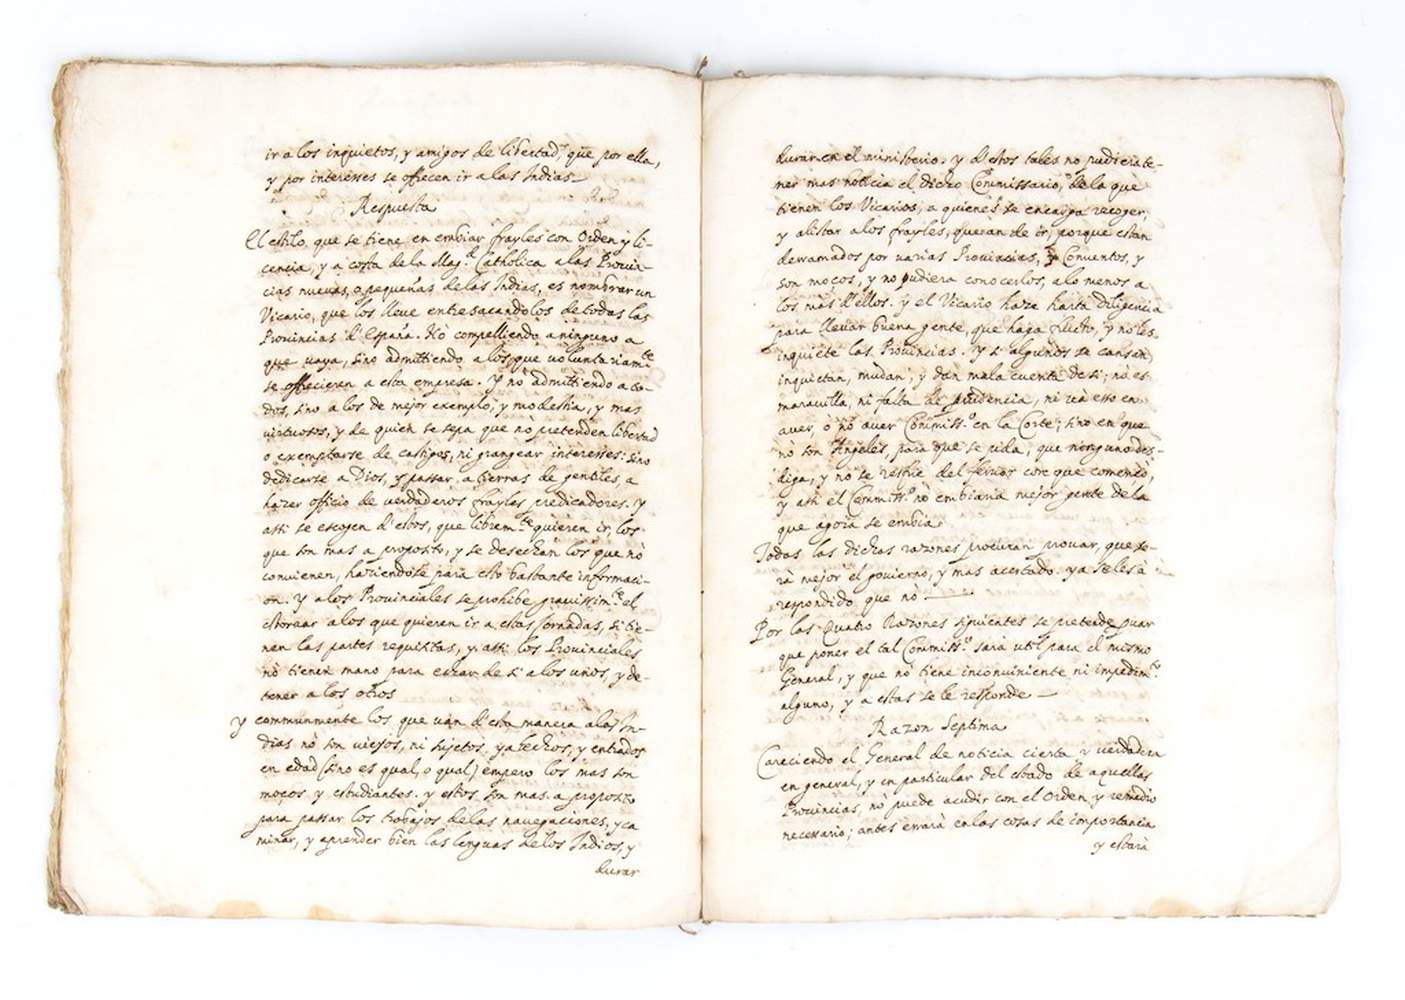 ir a los inquietos, y amigos de libertad, que por ella,
y por interesses se offrecen ir a las Indias
Respuesta
El estilo, que se tiene en embiar frayles con Orden y li-
cencia, y a costa de la Mag.d Catholica a las Provin-
cias nuevas, o pequeñas de las Indias, es nombrar un
Vicario, que los lleve entresacandolos de todas las
Provincias d'España. No compelliendo a ninguno a
que vaya, sino admittiendo a los, que voluntariam.te
se offrecieren a esta empresa. Y nò admittiendo a to-
dos, sino a los de mejor exemplo, y modestia, y mas
virtuosos, y de quien se sepa que nò pretenden libertad
o exemptarse de castigos, ni grangear interesses: sino
dedicarse a Dios, y passar a tierras de gentiles, a
hazer officio de verdaderos frayles predicadores. Y
assi se escogen d'estos, que librem.te quieren ir, los
que son mas a proposito, y se desechan los que nò
convienen, haziendose para esto bastante informaci-
on. Y a los Provinciales se prohibe gravissim.te el
estorvar a los que quieran ir a estas jornadas, si tie-
nen las partes requisitas, y assi los Provinciales
nò tienen mano para echar de si a los unos, y de-
tener a los otros
Y communmente los que van d'esta manera a las In-
dias nò son viejos, ni sujetos ya hechos, y entrados
en edad (sino es qual, o qual) empero los mas son
moços y estudiantes. y estos son mas a proposito
para passar los trabajos de las navegaciones, y ca
minar, y aprender bien las lenguas de los Indios, y
durar
durar en el ministerio. y d'estos tales no pudiera te-
ner mas noticia el dicho Commissario, de la que
tienen los Vicarios, a quienes se encarga recoger,
y alistar a los frayles, que ran de ir, porque estan
derramados por varias Provincias, y Conventos, y
son moços, y no pudiera conocerlos, alo menos a
los mas d'ellos. y el Vicario haze harta diligencia
para llevar buena gente, que haga fructo, y no les
inquiete las Provincias. Y si algunos se cansan,
inquietan, mudan, y dan mala cuenta de si; nò es
maravilla, ni falta de prudencia, ni està esto en
aver, ò nò aver Commiss.o en la Corte; sino en que
nò son Angeles, para que se pida, que ninguno des-
diga, y no se resfrie del fervor con que comencò,
y assi el Commiss.o nò embiaria mejor gente de la
que agora se embia.
Todas las dichas razones procuran provar, que se-
rà mejor el govierno, y mas acertado. ya se les à
respondido que nò
Por las Quatro Razones siguientes se pretende provar
que poner el tal Commiss.o sarà util para el mismo
General, y que nò tiene inconviniente ni impedim.to
alguno, y a estas se le responde
Razon Septima
Careciendo el General de noticia cierta y verdadera
en general, y en particular del estado de aquellas
Provincias, nò puede acudir con el Orden y remedio
necessario; antes errarà en las cosas de importancia
y estarà